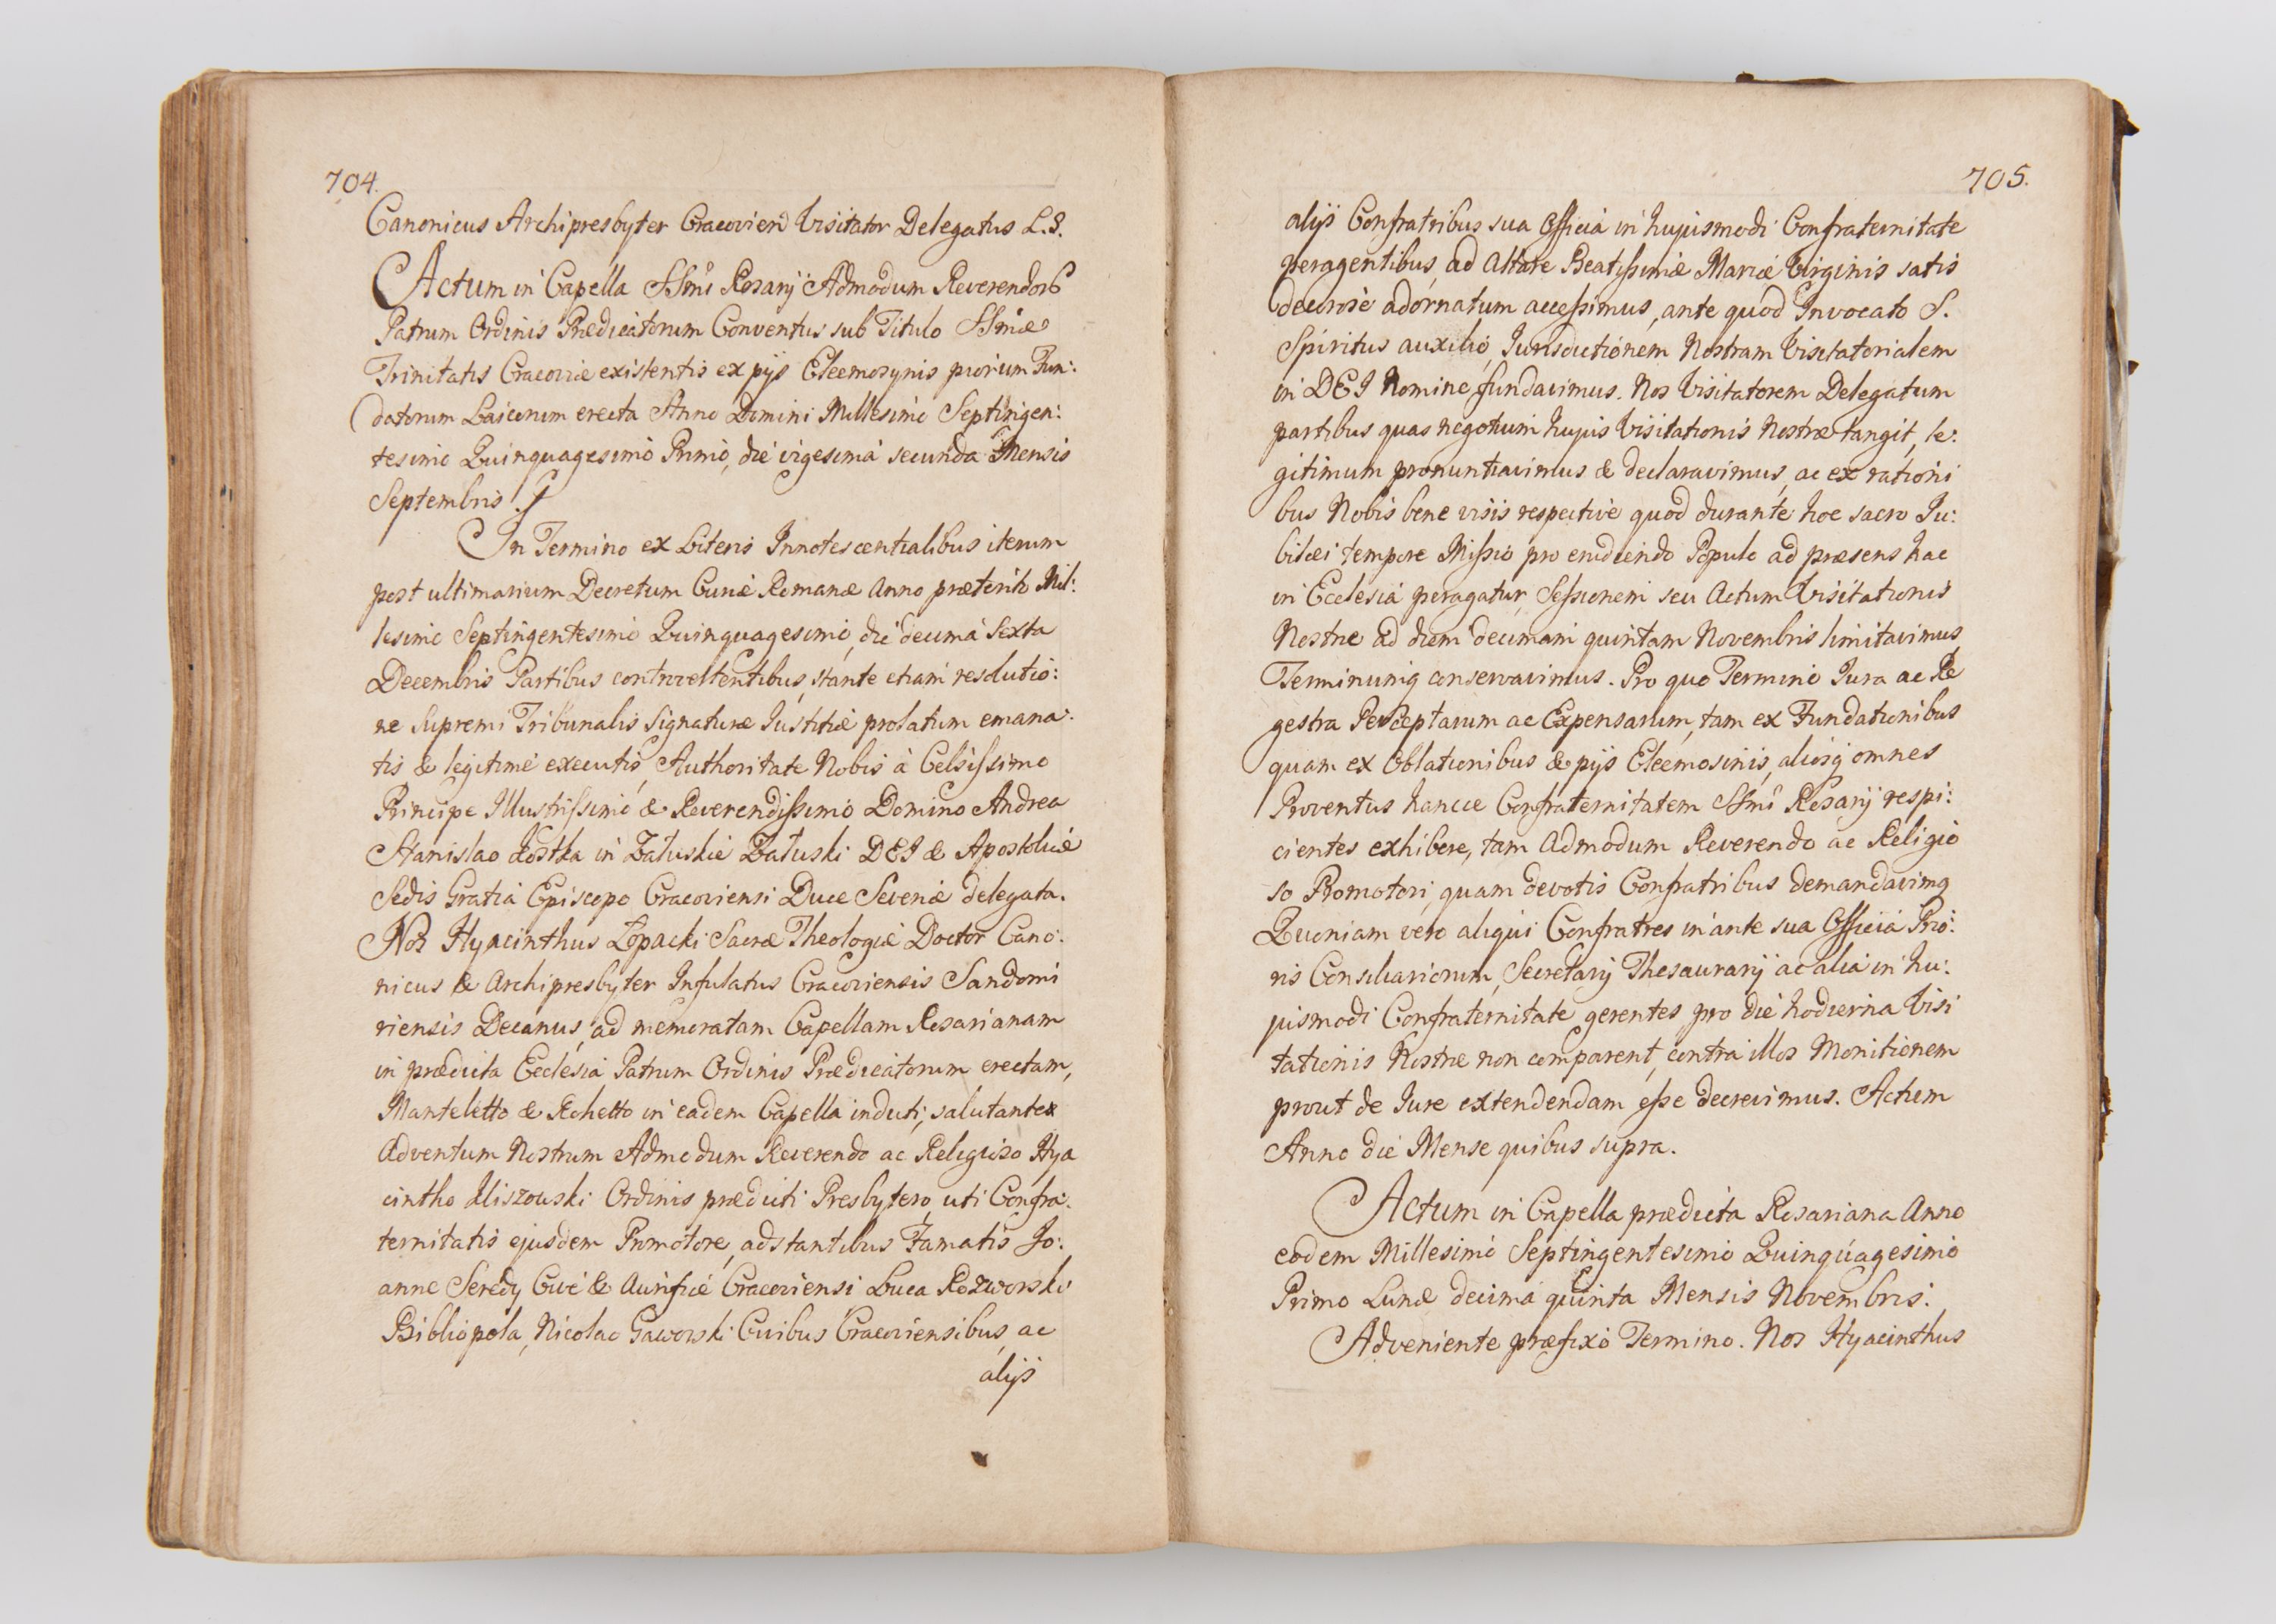 704.
Canonicus Archipresbyter Cracovien Visitator Delegatus L.S.
Actum in Capella SSmi Rosarij Admodum Reverendor
Patrum Ordinis Prædicatorum Conventus sub Titulo SSmæ
Trinitatis Cracoviæ existentis ex pijs Eleemosynis piorum Fun:
datorum Laicorum erecta Anno Domini Millesimo Septingen:
tesimo Quinquagesimo Primo, die vigesima secunda Mensis
Septembris.
In Termino ex Literis Innotescentialibus iterum
post ultimarium Decretum Curiæ Romanæ Anno præterito Mil:
lesimo Septingentesimo Quinquagesimo, die decima Sexta
Decembris Partibus controvertentibus, stante etiam resolutio:
ne Supremi Tribunalis Signaturæ Justitiæ prolatum emana:
tis & legitime executis, Authoritate Nobis à Celsissimo
Principe Illustrissimo & Reverendissimo Domino Andrea
Stanislao Kostka in Załuskie Załuski DEI & Apostolicæ
Sedis Gratia Episcopo Cracoviensi Duce Severiæ delegata.
Nos Hyacinthus Łopacki Sacræ Theologiæ Doctor Cano:
nicus & Archipresbyter Infulatus Cracoviensis Sandomi
riensis Decanus, ad memoratam Capellam Rosarianam
in prædicta Ecclesia Patrum Ordinis Prædicatorum erectam,
Manteletto & Rohetto in eadem Capella induti, salutantes
Adventum Nostrum Admodum Reverendo ac Religioso Hya
cintho Kliszowski Ordinis prædicti Presbytero, uti Confra:
ternitatis ejusdem Promotore, adstantibus Famatis Jo:
anne Seredy Cive & Aurifice Cracoviensi Luca Rozworski
Bibliopola, Nicolao Gaworski Civibus Cracoviensibus, ac
alijs
705.
alijs Confratribus sua Officia in hujusmodi Confraternitate
peragentibus, ad Altare Beatissimæ Mariæ Virginis satis
decorose adornatum accessimus, ante quod Invocato S.
Spiritus auxilio, Jurisdictionem Nostram Visitatorialem
in DEI Nomine fundavimus. Nos Visitatorem Delegatum
partibus quas negotium hujus Visitationis Nostræ tangit, le:
gitimum pronuntiavimus & declaravimus, ac ex rationi
bus Nobis bene visis respective quod durante hoc sacro Ju:
bilæi tempore Missio pro erudiendo Populo ad præsens hac
in Ecclesia peragatur, Sessionem seu Actum Visitationis
Nostræ ad diem decimam quintam Novembris limitavimus,
Terminumq conservavimus. Pro quo Termino Jura ac Re
gestra Perceptarum ac Expensarum, tam ex Fundationibus
quam ex Oblationibus & pijs Eleemosinis, aliosq omnes
Proventus hancce Confraternitatem SSmi Rosarij respi:
cientes exhibere, tam Admodum Reverendo ac Religio
so Promotori, quam devotis Confratribus demandavimq
Quoniam vero aliqui Confratres in ante sua Officia Prio:
ris Consiliariorum, Secretarij Thesaurarij ac alia in hu:
jusmodi Confraternitate gerentes pro die hodierna Visi
tationis Nostræ non comparent, contra illos Monitionem
prout de Jure extendendam esse decrevimus. Actum
Anno die Mense quibus supra.
Actum in Capella prædicta Rosariana Anno
eodem Millesimo Septingentesimo Quinquagesimo
Primo Lunæ decima quinta Mensis Novembris.
Adveniente præfixo Termino. Nos Hyacinthus